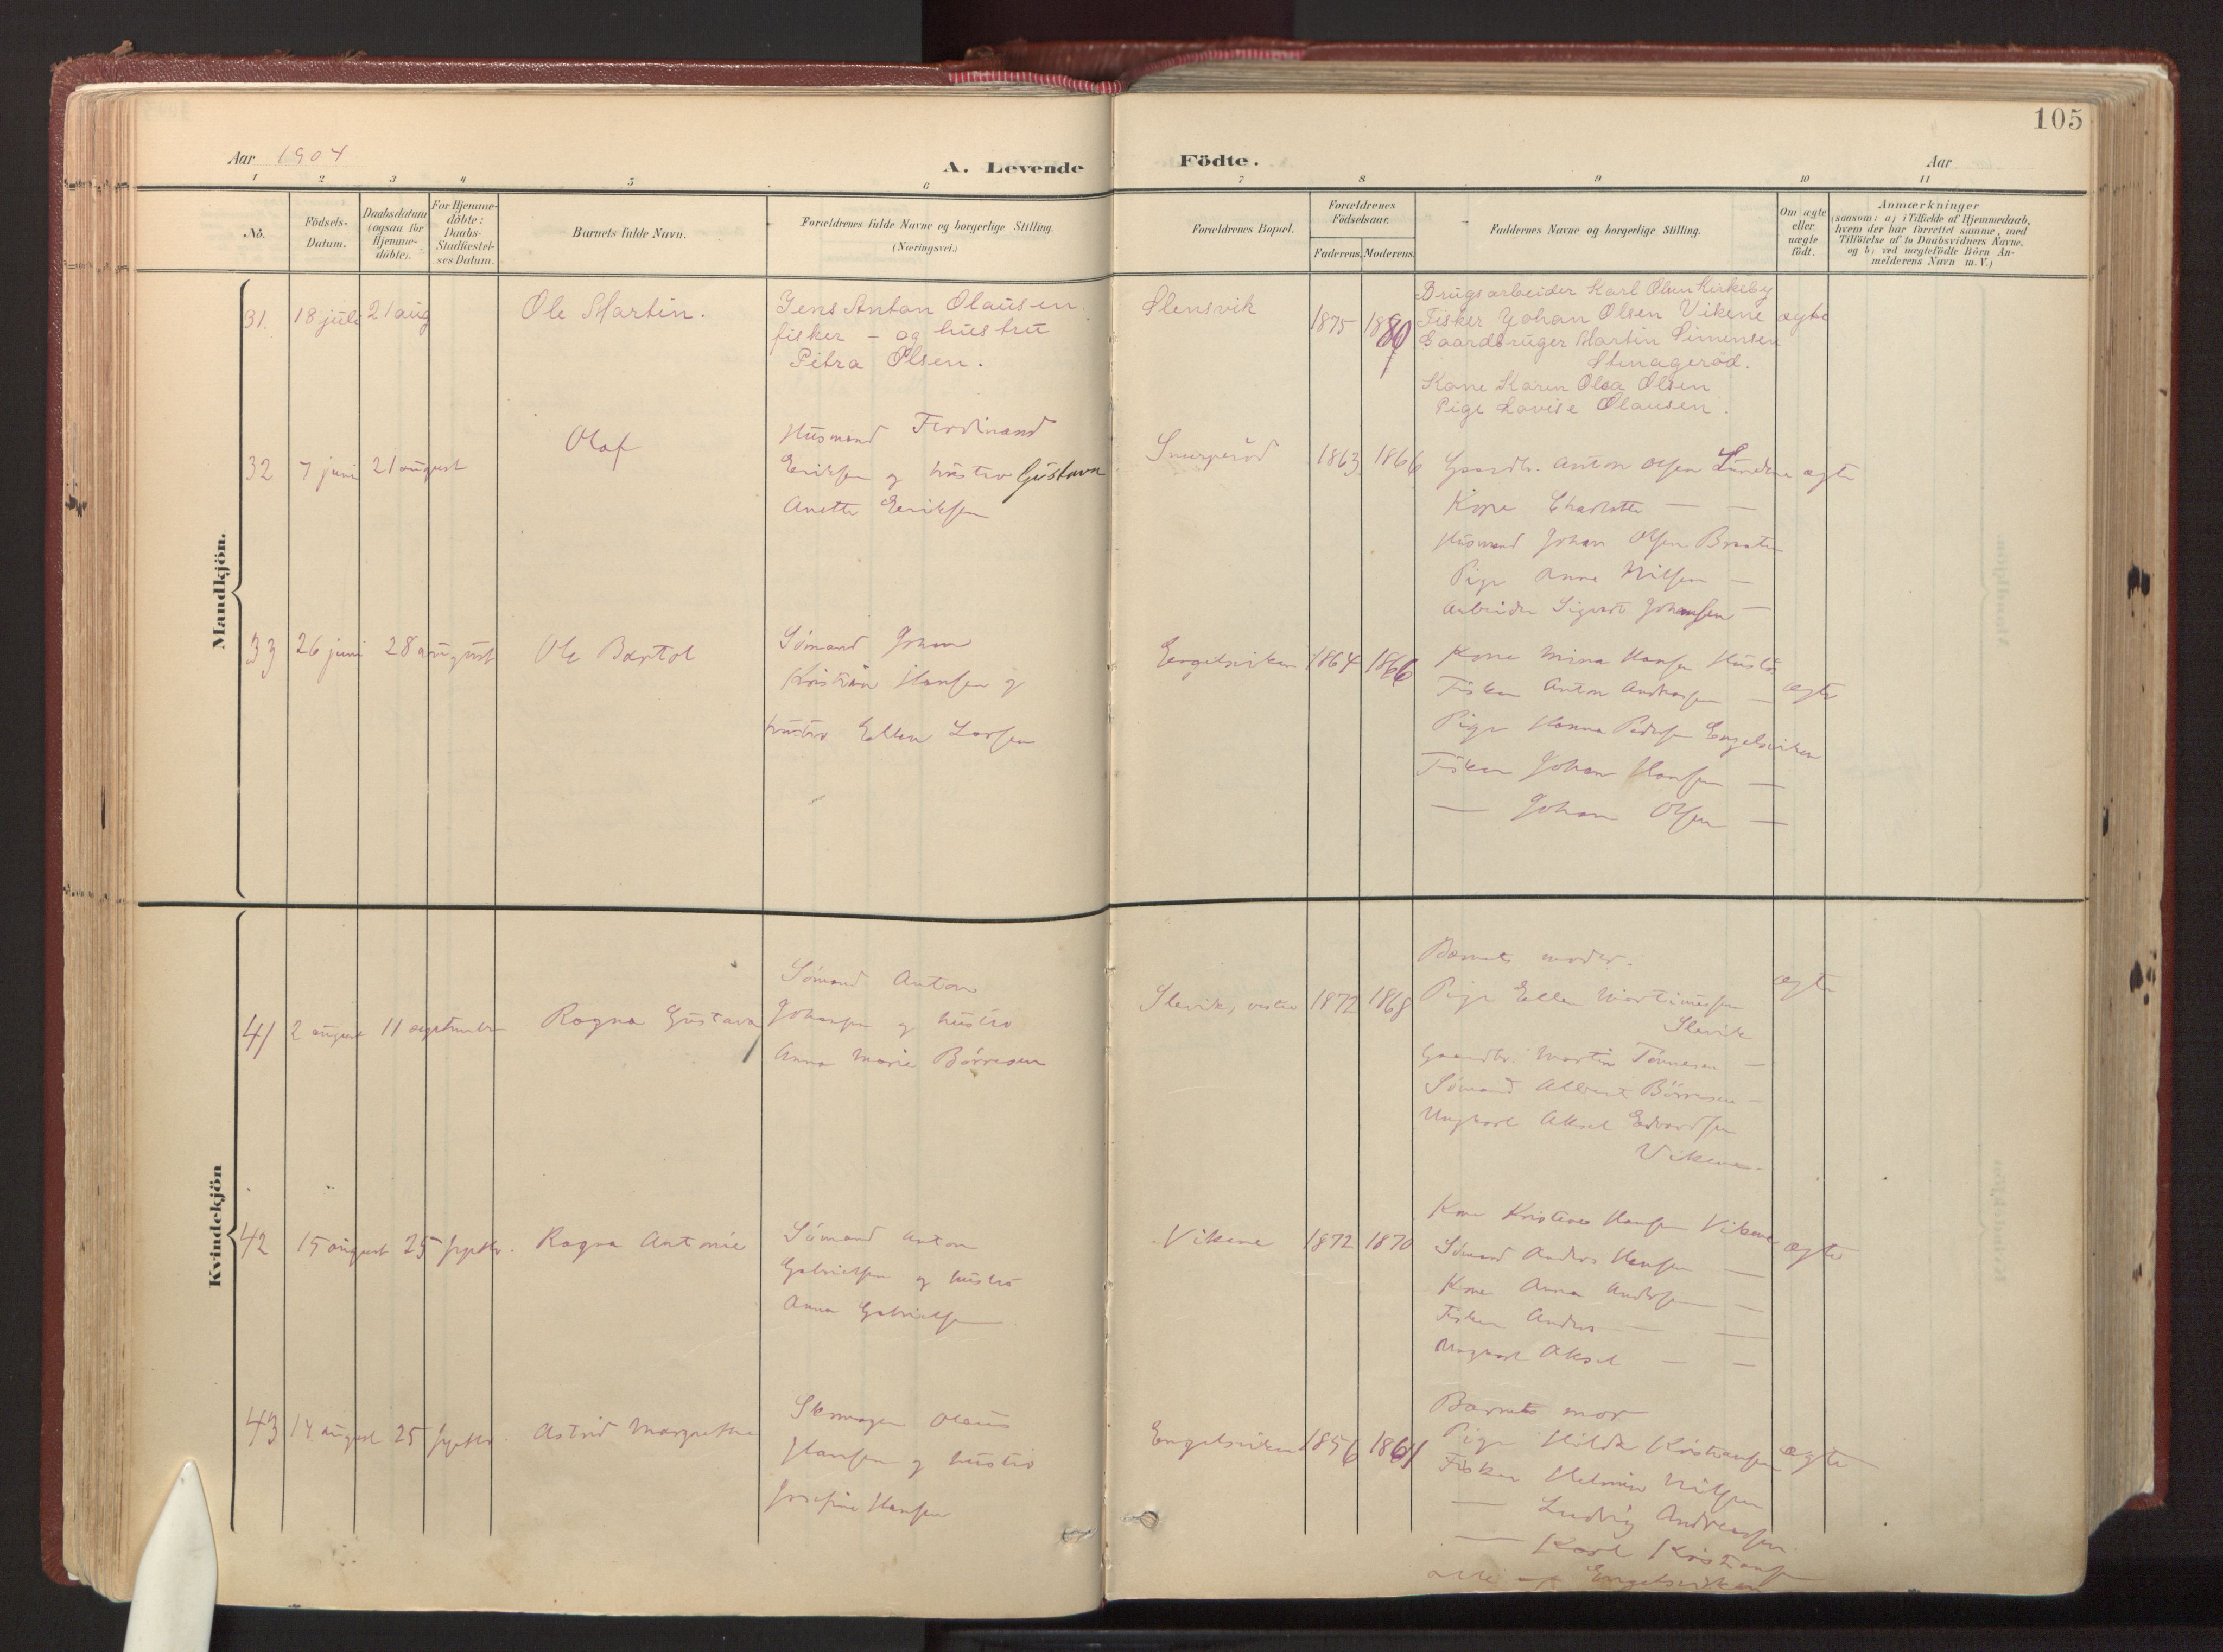 105
Aar 1904
A. Levende Födte.
Aar
1 2 3 4 5 6 7 8 9 10 11
No.
Födsels-
Datum.
Daabsdatum
(ogsaa for
Hjemme-
döbte).
For Hjemme-
döbte:
Daabs-
Stadfæstel-
ses Datum.
Barnets fulde Navn.
Forældrenes fulde Navne og borgerlige Stilling.
(Næringsvei.)
Forældrenes Bopæl.
Forældrenes
Födselsaar.
Faderens. Moderens.
Faddernes Navne og borgerlige Stilling.
Om ægte
eller
uægte
födt.
Anmærkninger
(saasom: a) i Tilfælde af Hjemmedaab,
hvem der har forrettet samme, med
Tilföielse af to Daabsvidners Navne.
og b) ved uægtefödte Börn An-
melderens Navn m. V.)
Mandkjön.
31. 18 juli 21 aug
Ole Martin.
Jens Anton Olausen
fisker - og hustru
Petra Olsen.
Slensvik
1875 1880
Brugsarbeider Karl Olsen Kirkeby
Fisker Johan Olsen Vikene
Gaardbruger Martin Simensen
Stenageröd.
Kone Karen Olea Olsen
Pige Lovise Olausen.
ægte
32 7 juni 21 august
Olaf
Husmand Ferdinand
Eriksen og hustro Gustava
Anette Eriksen
1863 1866
Gaardbr. Anton Olsen Lundene
Kone Charlotte — —
Husmand Johan Olsen Braaten
Pige Anna Nilsen —
Arbeider Sigvart Johansen —
ægte
33 26 juni 28 august
Ole Bertol
Sömand Johan
Kristian Hansen og
hustro Ellen Larsen
Engelsviken
1864 1866
Kone Mina Hansen
Fisker Anton Andreassen —
Pige Hanna Pedersen Engelsviken
Fisker Johan Hansen —
— Johan Olsen —
ægte
Kvindekjön
41 2 august 11 september
Ragna Gustava
Sömand Anton
Johansen og hustro
Anna Marie Börresen
Slevik, vestre
1872 1868
Barnets moder.
Pige Ellen Martinussen
Slevik
Gaardbr. Martin Tönnesen —
Sömand Albert Börresen —
Ungkarl Aksel Edvardsen
Vikene.
ægte
42 15 august 25 septbr.
Ragna Antonie
Sömand Anton
Gabrielsen og hustro
Anna Gabrielsen
Vikene
1872 1870
Kone Kristine Hansen Vikene
Sömand Anders Hansen —
Kone Anna Andersen —
Fisker Anders — —
Ungkarl Aksel — —
ægte
43 14 august 25 septbr.
Astrid Margrethe
Skomager Olaus
Hansen og hustro
Josefine Hansen
Engelsviken
1856 1861
Barnets mor
Pige Hilda Kristiansen
Fisker Helmer Nilsen
— Ludvig Andreassen
— Karl Kristiansen
alle af Engelsviken
ægte